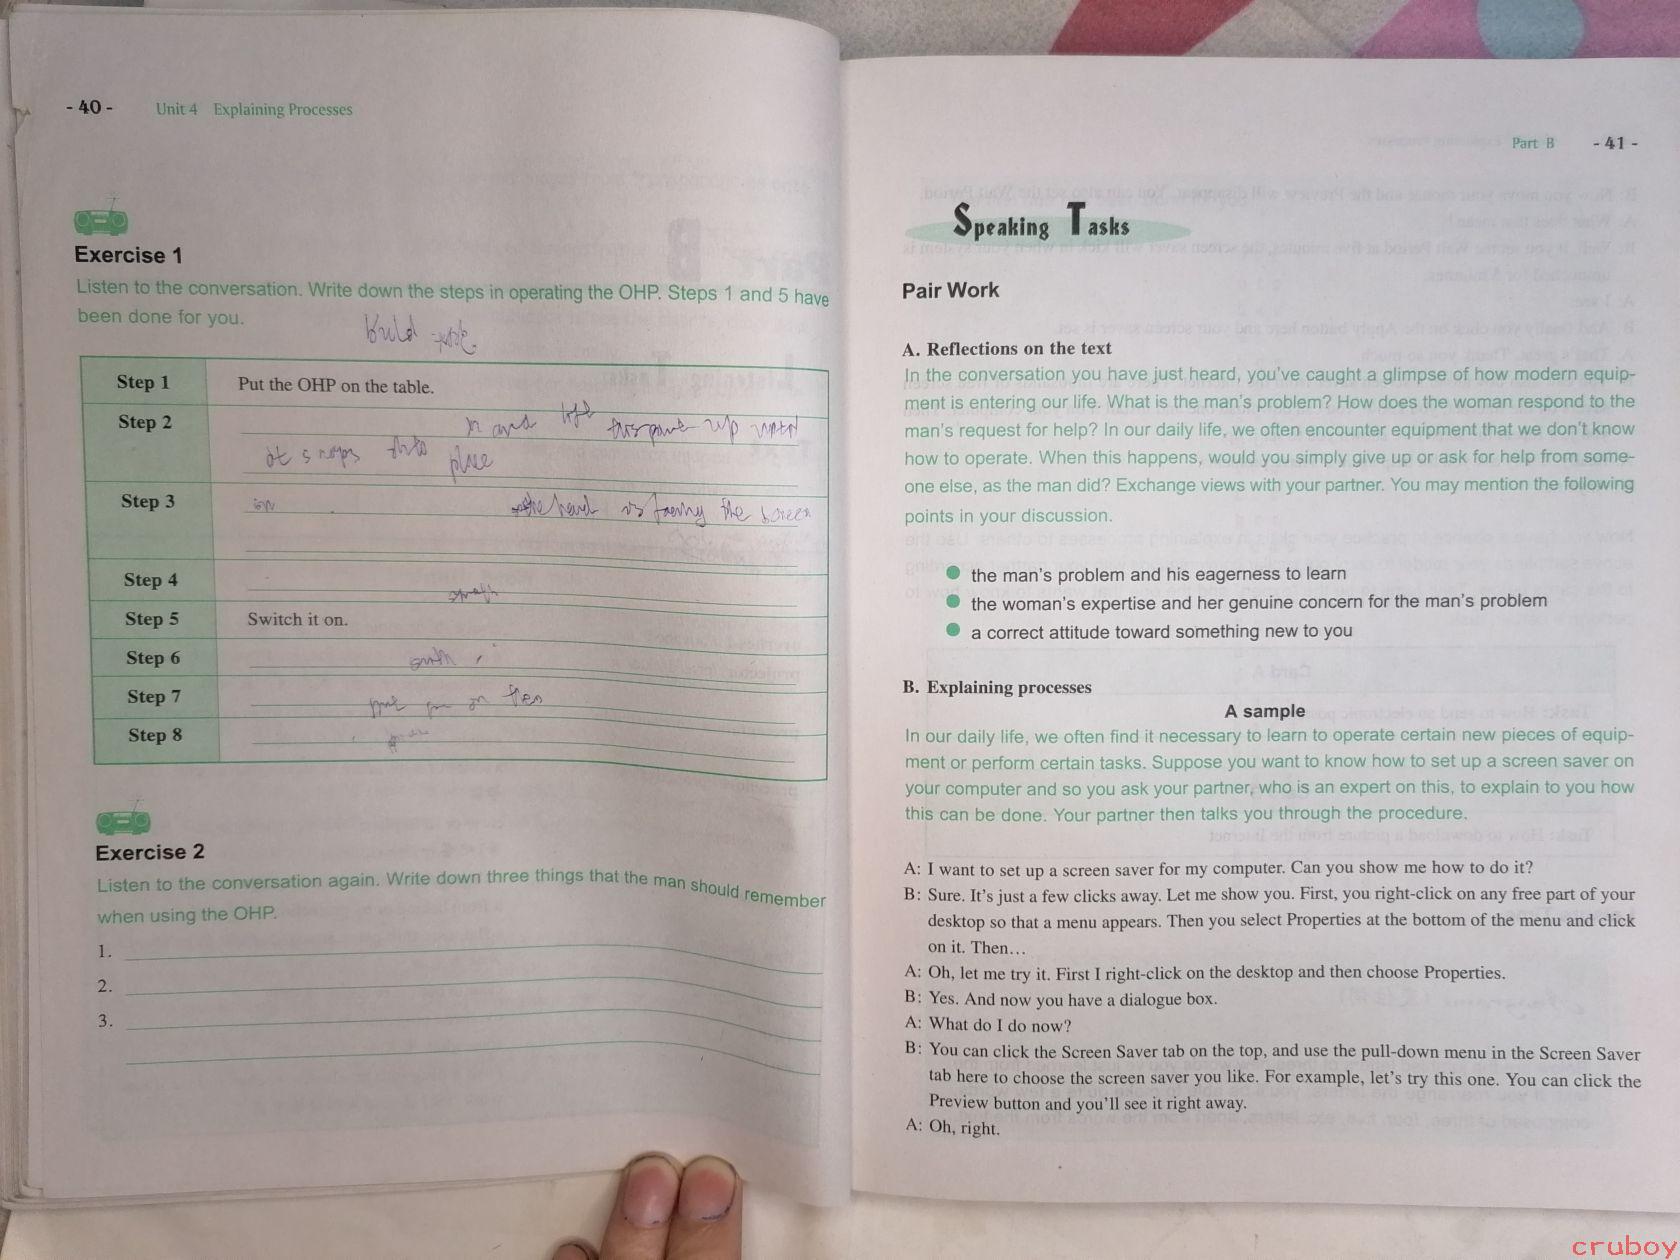 - 40 - Unit 4 Explaining Processes
Exercise 1
Listen to the conversation. Write down the steps in operating the OHP. Steps 1 and 5 have
been done for you.
Step 1 Put the OHP on the table.
Step 2 and left up until
it snaps into place
Step 3 on the head is facing the screen
Step 4
Step 5 Switch it on.
Step 6
Step 7 put on
Step 8
Exercise 2
Listen to the conversation again. Write down three things that the man should remember
when using the OHP.
1.
2.
3.
Part B - 41 -
Speaking Tasks
Pair Work
A. Reflections on the text
In the conversation you have just heard, you've caught a glimpse of how modern equip-
ment is entering our life. What is the man's problem? How does the woman respond to the
man's request for help? In our daily life, we often encounter equipment that we don't know
how to operate. When this happens, would you simply give up or ask for help from some-
one else, as the man did? Exchange views with your partner. You may mention the following
points in your discussion.
the man's problem and his eagerness to learn
the woman's expertise and her genuine concern for the man's problem
a correct attitude toward something new to you
B. Explaining processes
A sample
In our daily life, we often find it necessary to learn to operate certain new pieces of equip-
ment or perform certain tasks. Suppose you want to know how to set up a screen saver on
your computer and so you ask your partner, who is an expert on this, to explain to you how
this can be done. Your partner then talks you through the procedure.
A: I want to set up a screen saver for my computer. Can you show me how to do it?
B: Sure. It's just a few clicks away. Let me show you. First, you right-click on any free part of your
desktop so that a menu appears. Then you select Properties at the bottom of the menu and click
on it. Then…
A: Oh, let me try it. First I right-click on the desktop and then choose Properties.
B: Yes. And now you have a dialogue box.
A: What do I do now?
B: You can click the Screen Saver tab on the top, and use the pull-down menu in the Screen Saver
tab here to choose the screen saver you like. For example, let's try this one. You can click the
Preview button and you'll see it right away.
A: Oh, right.
cruboy